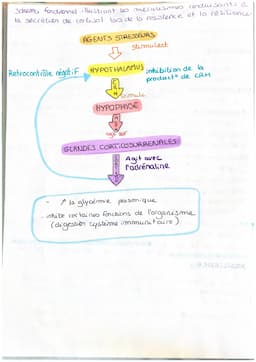 schéma fonctionnel illustrant les mécanismes conduisant à
la sécrétion de cortisol lors de la résistance et la résilience
AGENTS STRESSEURS
stimulent
Rétrocontrôle négatif
HYPOTHALAMUS
inhibition de la
product° de CRH
CRH
stimule
HYPOPHYSE
GLANDES CORTICOSURRENALES
Agit avec
l'adrénaline
- ↗ la glycémie plasmique
- inhibe certaines fonctions de l'organisme
(digestion système immunitaire)